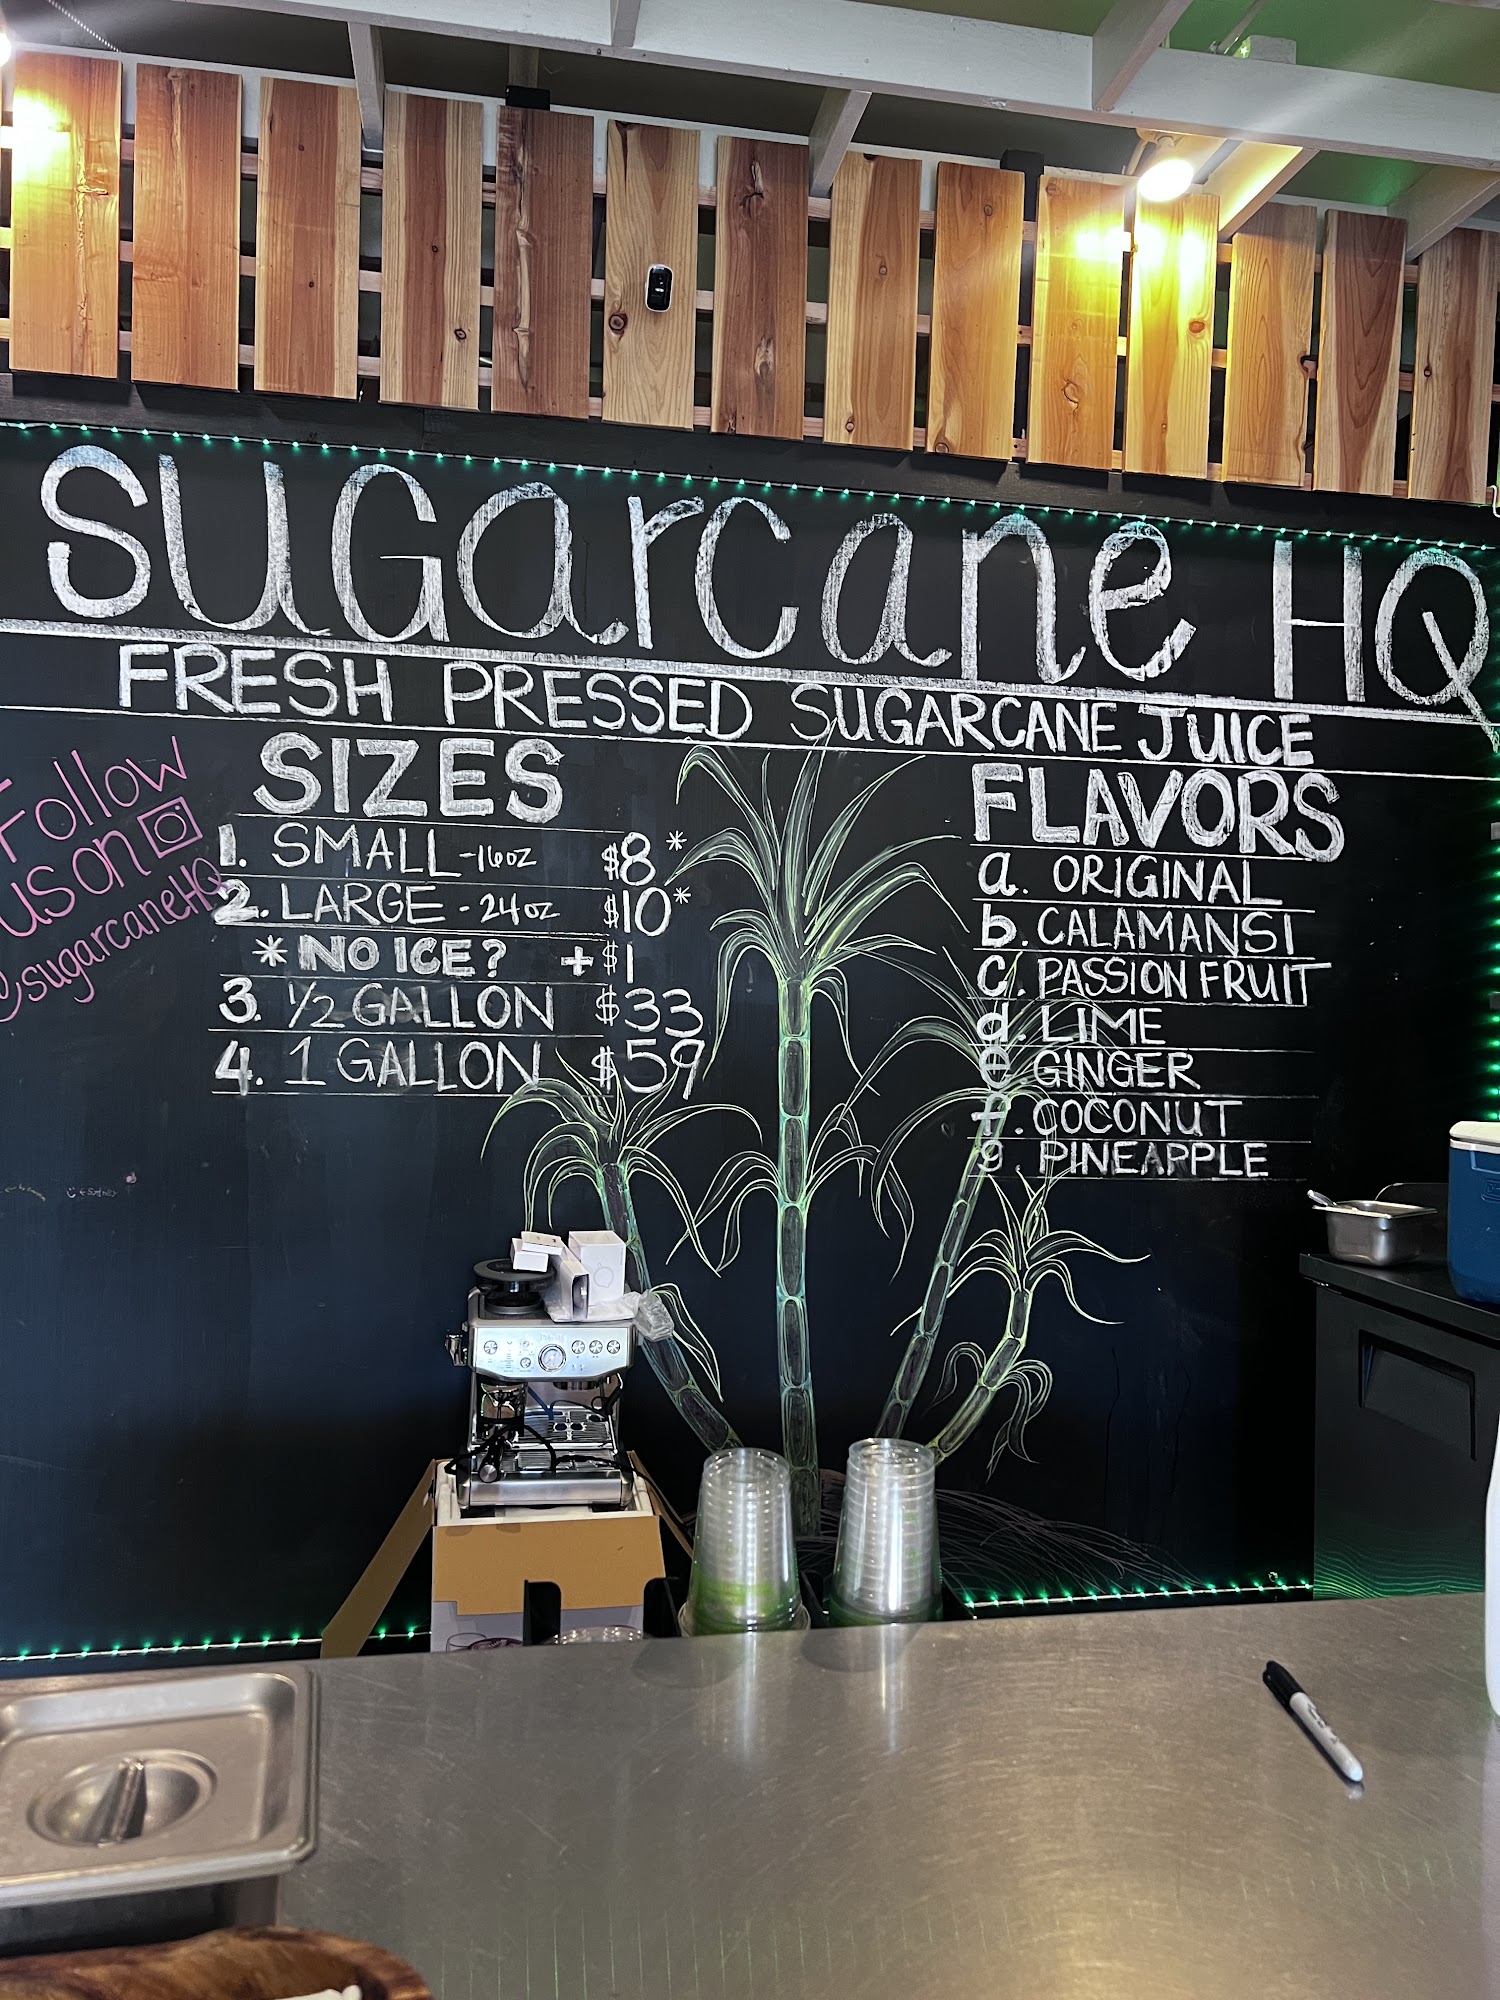 sugarcane HQ
FRESH PRESSED SUGARCANE JUICE
Follow
us on
@sugarcaneHQ
SIZES
1. SMALL -16oz $8*
2. LARGE - 24oz $10*
*NO ICE? +$1
3. 1/2 GALLON $33
4. 1 GALLON $59
FLAVORS
a. ORIGINAL
b. CALAMANSI
c. PASSION FRUIT
d. LIME
e GINGER
f. COCONUT
g. PINEAPPLE